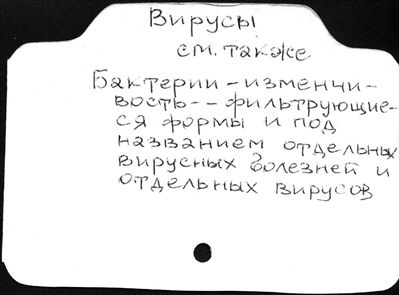 Вирусы
см. также
Бактерии - изменчи-
вость - - фильтрующие-
ся формы и под
названием отдельных
вирусных болезней и
отдельных вирусов